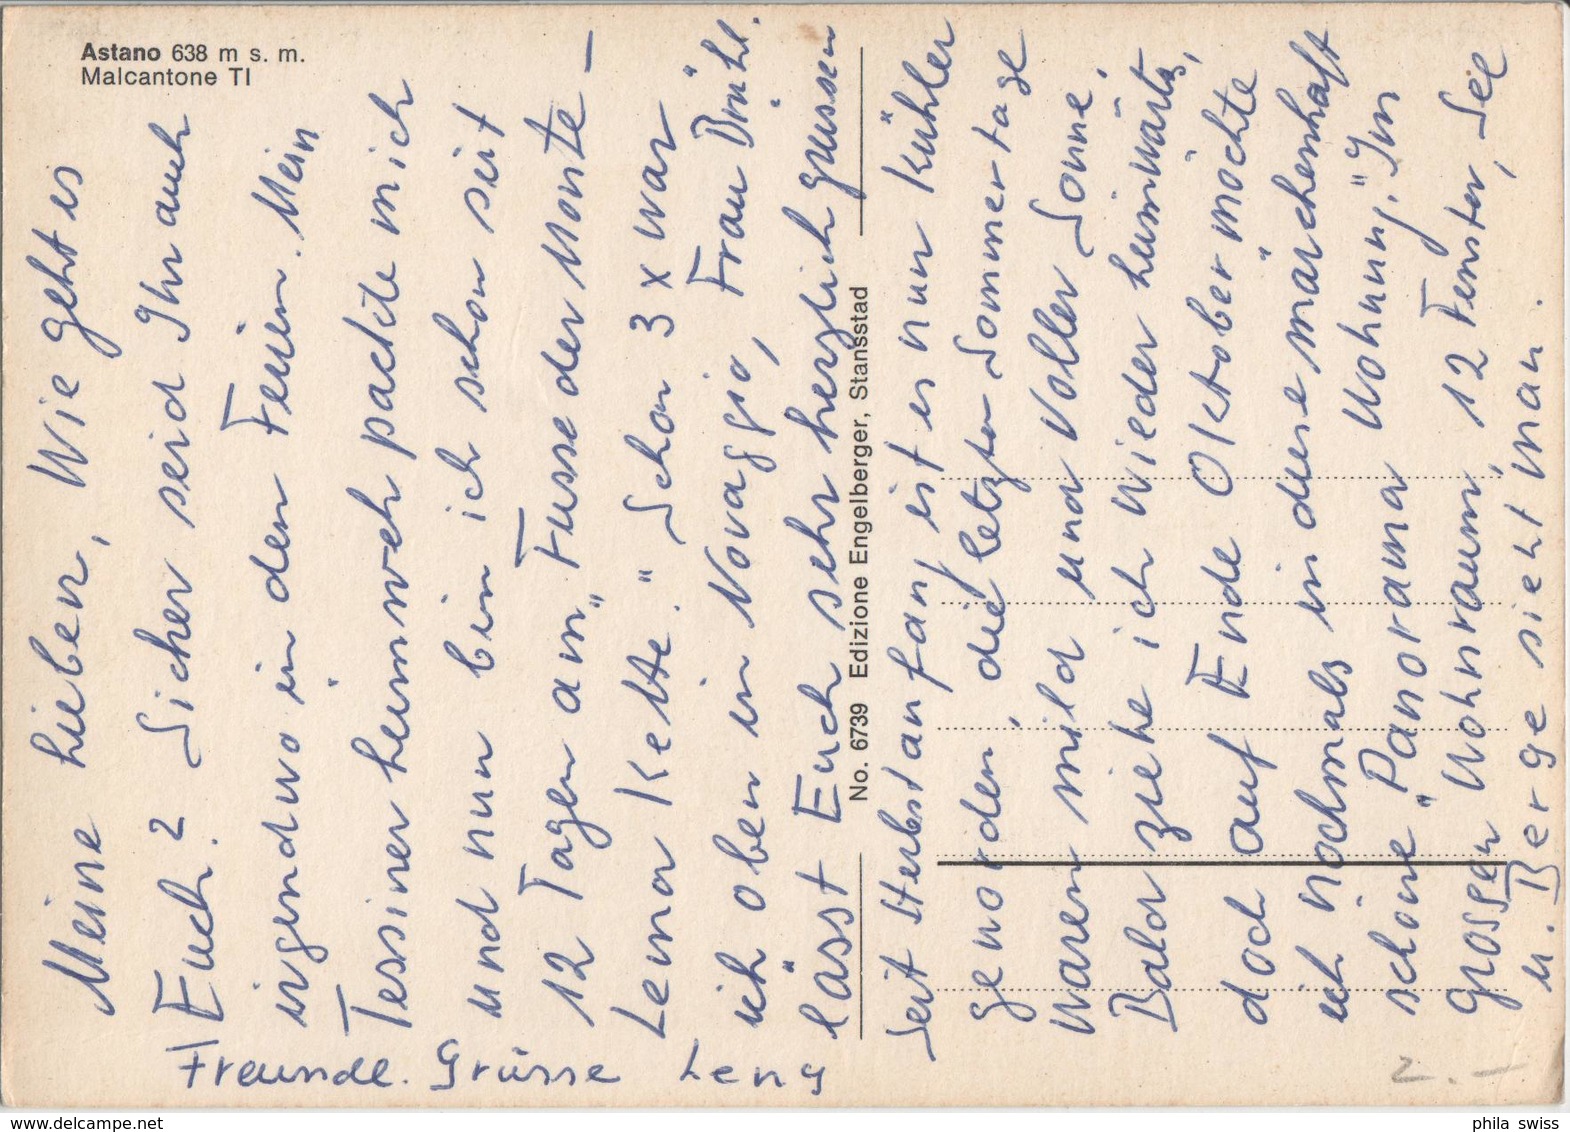 Astano 638 m s. m.
Malcantone TI
Meine Lieben, Wie geht es
Euch? Sicher seid Ihr auch
irgendwo in den Ferien. Mein
Tessiner heimweh packte mich
und nun bin ich schon seit
12 Tagen am "Fusse der Monte –
Lema Kette." Schon 3 x war
ich oben in Novaggio, Frau Brühl.
lässt Euch sehr herzlich grüssen
Freundl. Grüsse Leny
No. 6739 Edizione Engelberger, Stansstad
Seit Herbstanfang ist es nun kühler
geworden, die letzten Sommertage
waren mild und voller Sonne.
Bald ziehe ich wieder heimwärts,
doch auf Ende Oktober möchte
ich nochmals in diese märchenhaft
schöne "Panorama Wohnung." Im
grossen Wohnraum, 12 Fenster, See
u. Berge sieht man.
2.–
phila swiss